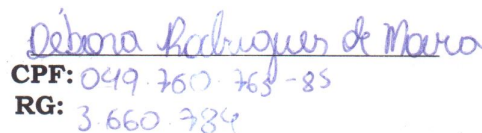 Débora Rodrigues de Moura
CPF: 049.760.763-85
RG: 3.660.784